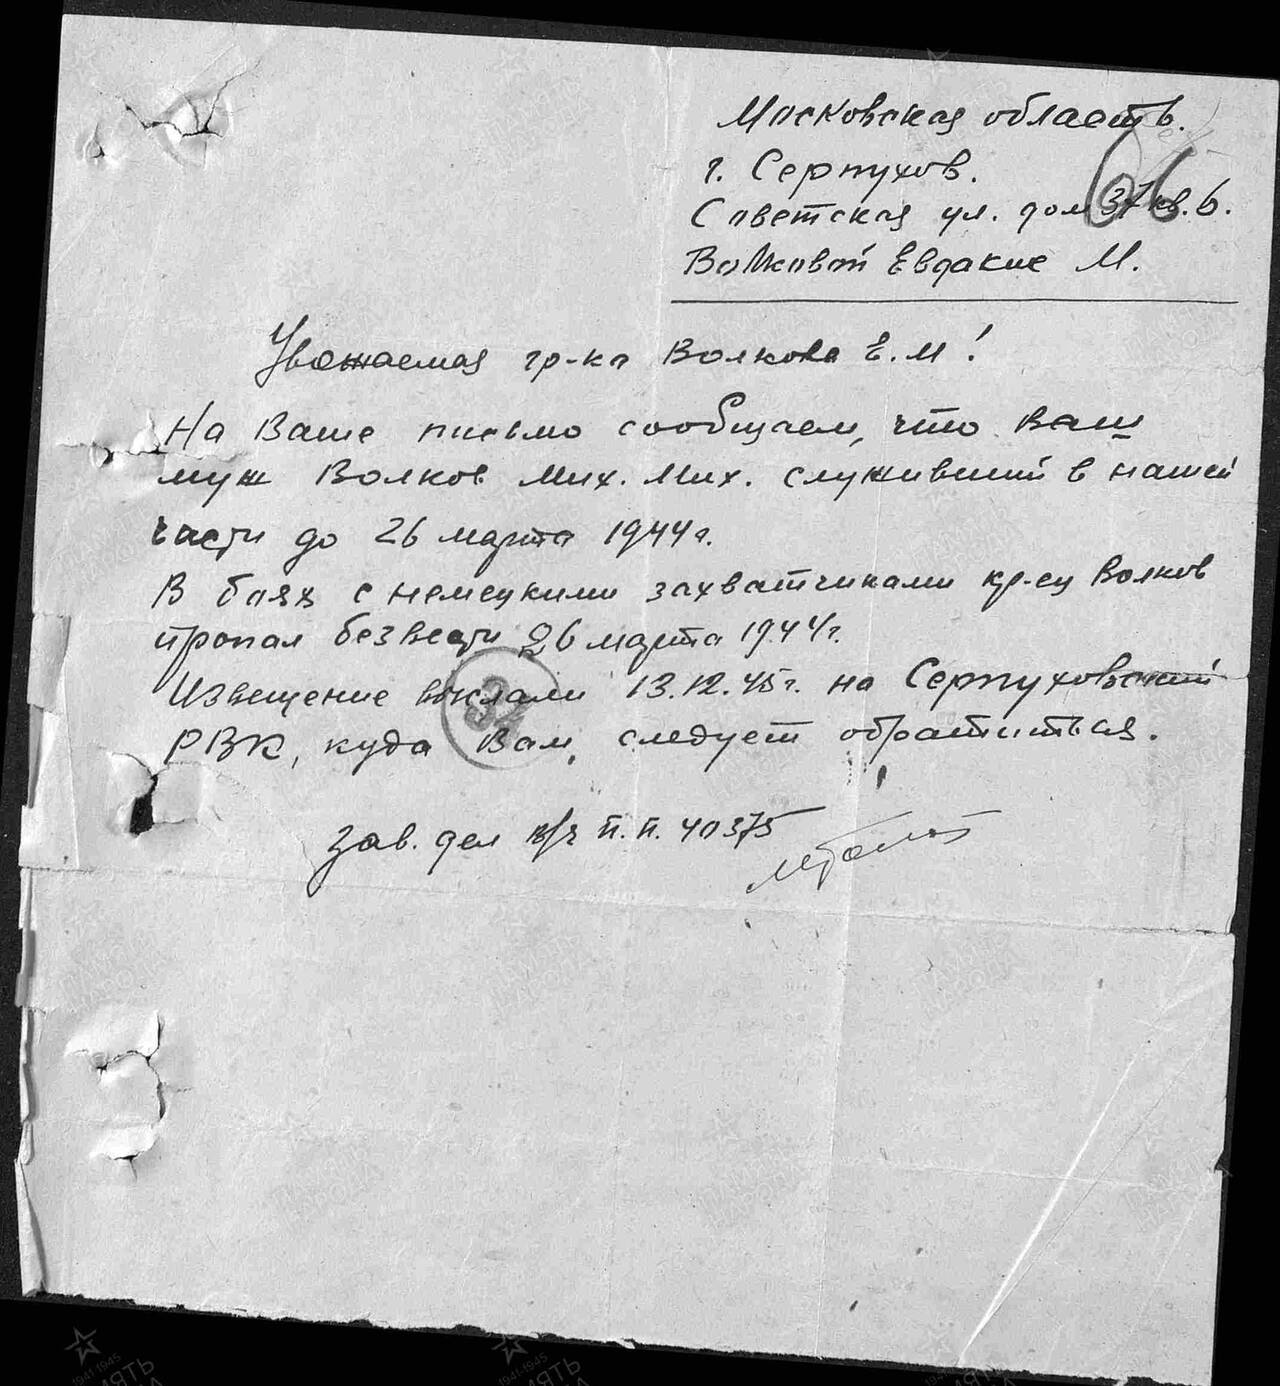 Московская область.
г. Серпухов.
Советская ул. дом 37 кв. 6.
Волковой Евдакие М.
Уважаемая гр-ка Волкова Е.М!
На Ваше письмо сообщаем, что Ваш
муж Волков Мих. Мих. служивший в нашей
части до 26 марта 1944 г.
В боях с немецкими захватчиками кр-ец Волков
пропал без вести 26 марта 1944 г.
Извещение выслали 13.12.45 г. на Серпуховский
РВК, куда Вам, следует обратиться.
32
Зав. дел в/ч п.п. 40375
ПАМЯТЬ
НАРОДА
1941-1945